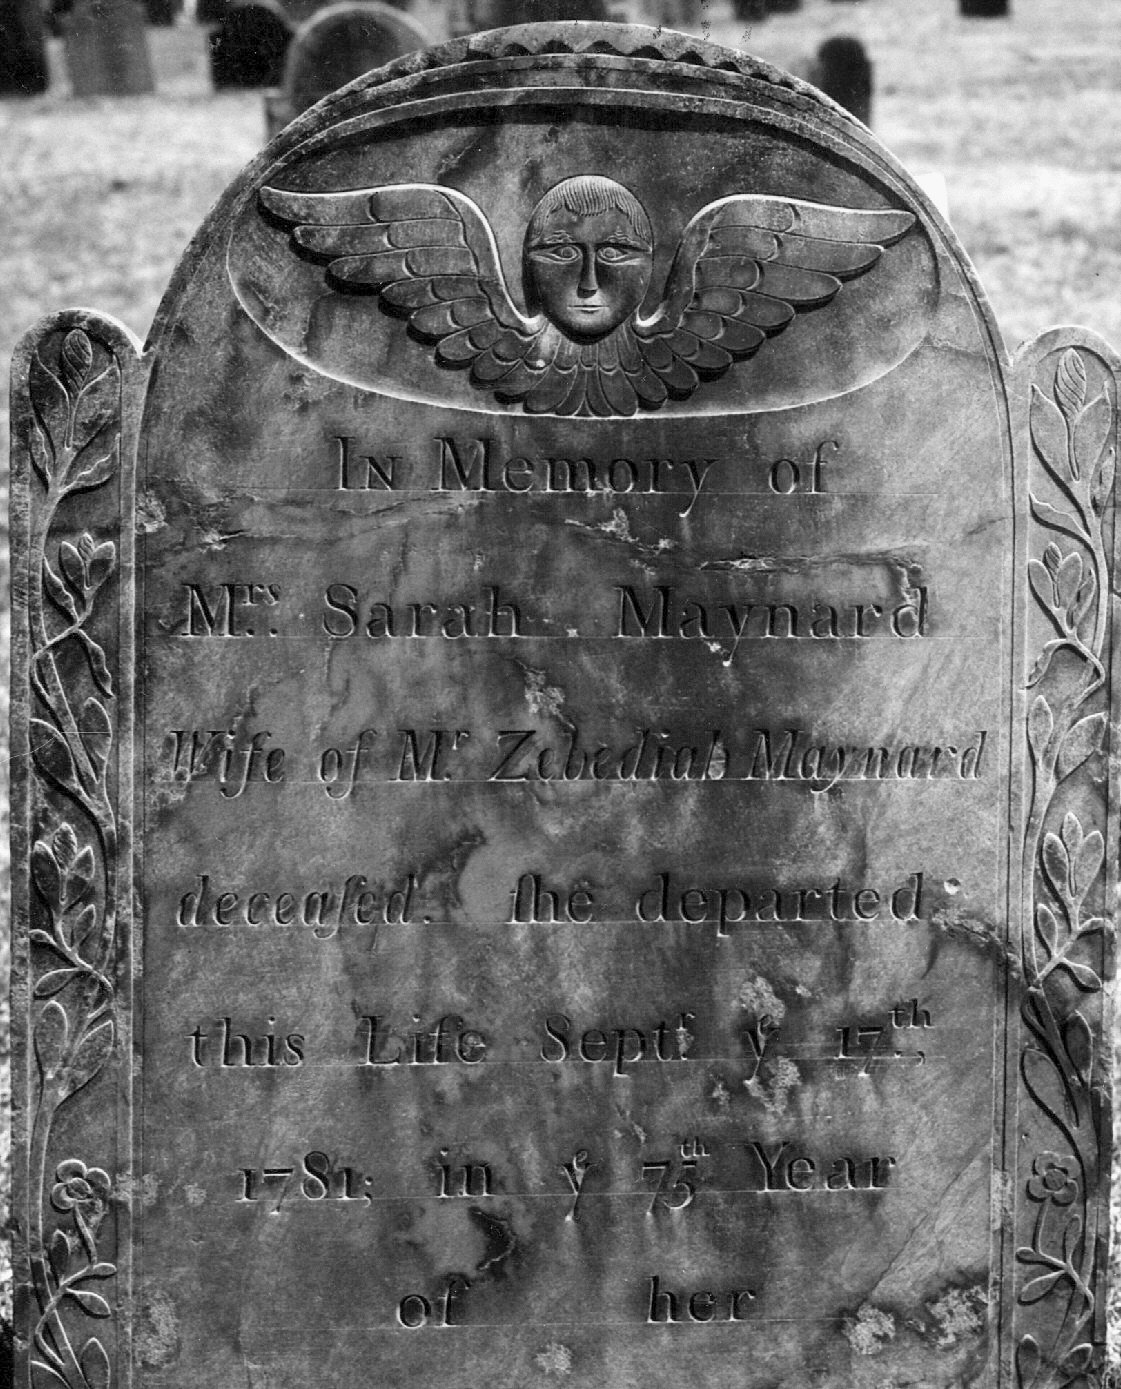 In Memory of
Mrs. Sarah Maynard
Wife of Mr. Zebediah Maynard
deceaſed. ſhe departed
this Life Septr. ye 17th.,
1781; in ye 75th Year
of her